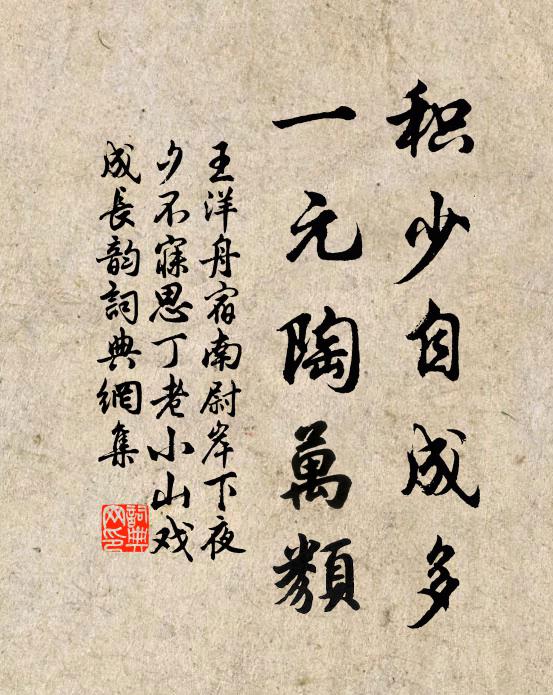 积少自成多
一元陶萬類
王洋舟宿南尉岸下夜
夕不寐思丁老小山戏
成長韵詞典網集
詞典網印